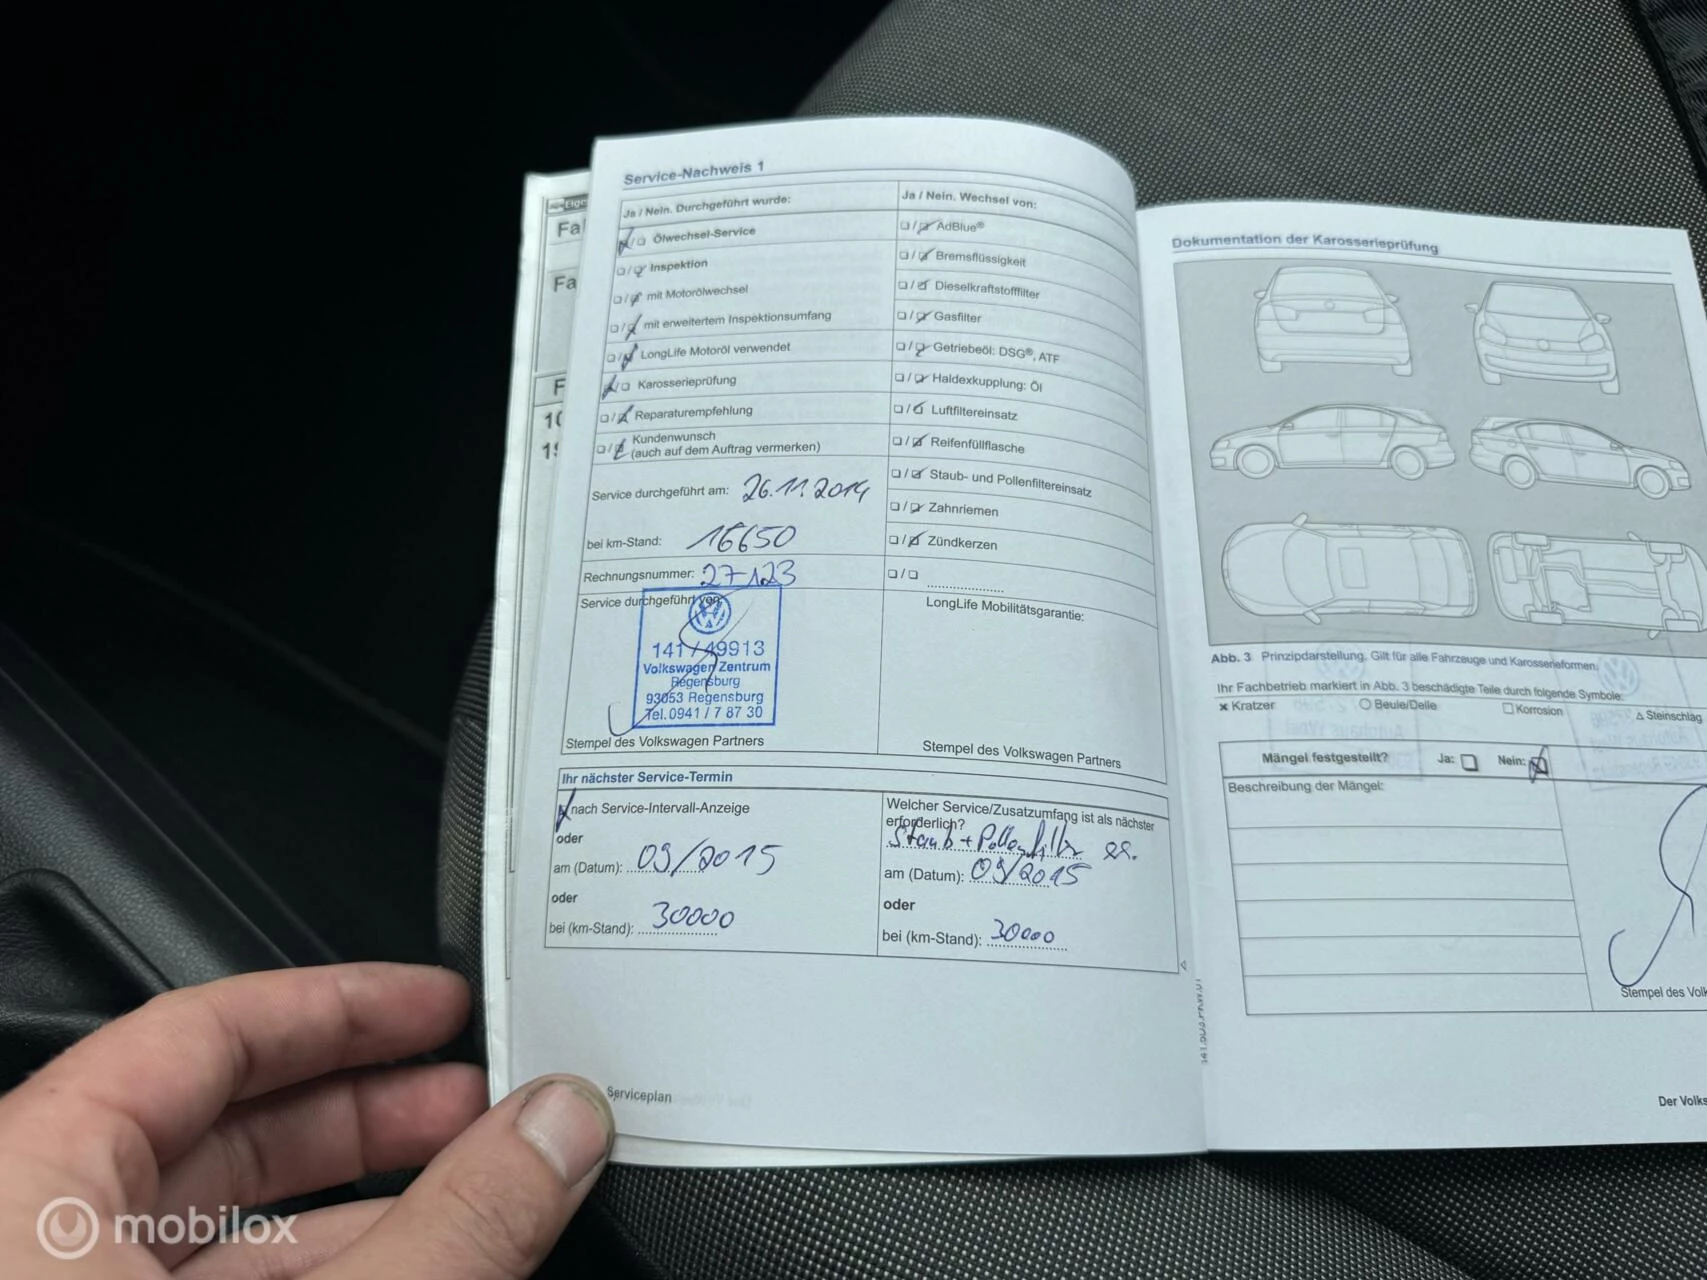 Service-Nachweis 1
Ja / Nein. Durchgeführt wurde:
Ölwechsel-Service
Inspektion
mit Motorölwechsel
mit erweitertem Inspektionsumfang
LongLife Motoröl verwendet
Karosserieprüfung
Reparaturempfehlung
Kundenwunsch
(auch auf dem Auftrag vermerken)
Service durchgeführt am: 26.11.2014
bei km-Stand: 16650
Rechnungsnummer: 27123
Service durchgeführt von:
141 / 49913
Volkswagen Zentrum
Regensburg
93053 Regensburg
Tel. 0941 / 7 87 30
Stempel des Volkswagen Partners
Ja / Nein. Wechsel von:
AdBlue®
Bremsflüssigkeit
Dieselkraftstofffilter
Gasfilter
Getriebeöl: DSG®, ATF
Haldexkupplung: Öl
Luftfiltereinsatz
Reifenfüllflasche
Staub- und Pollenfiltereinsatz
Zahnriemen
Zündkerzen
LongLife Mobilitätsgarantie:
Stempel des Volkswagen Partners
Ihr nächster Service-Termin
nach Service-Intervall-Anzeige
oder
am (Datum): 09/2015
oder
bei (km-Stand): 30000
Welcher Service/Zusatzumfang ist als nächster
erforderlich?
Staub + Pollenfilter
am (Datum): 09/2015
oder
bei (km-Stand): 30000
Serviceplan
Dokumentation der Karosserieprüfung
Abb. 3 Prinzipdarstellung. Gilt für alle Fahrzeuge und Karosserieformen.
Ihr Fachbetrieb markiert in Abb. 3 beschädigte Teile durch folgende Symbole:
Kratzer Beule/Delle Korrosion Steinschlag
Mängel festgestellt? Ja: Nein:
Beschreibung der Mängel:
Stempel des Volk
Der Volks
mobilox